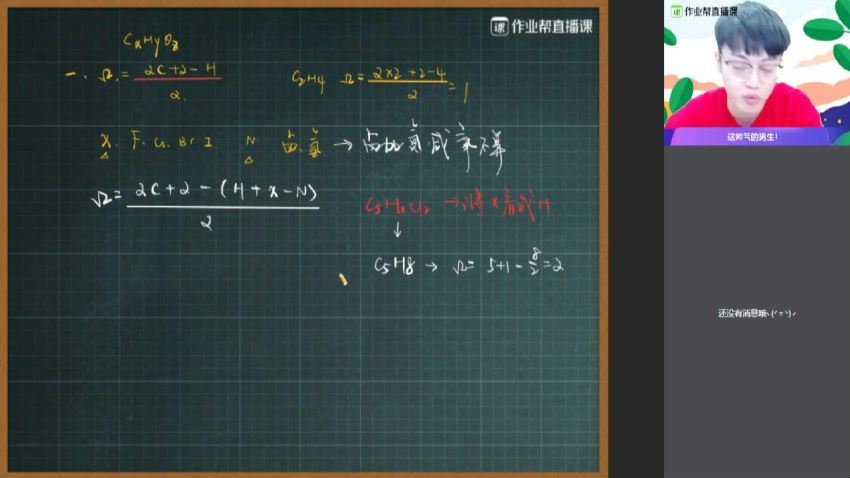 作业帮直播课
CxHyOz
一. Ω = 2C+2-H / 2
C2H4 Ω = 2×2+2-4 / 2 = 1
X. F. Cl. Br I N 卤.氮 → 卤加氮减氧不算
Ω = 2C+2-(H+x-N) / 2
C5H6Cl2 → 将x看成H
↓
C5H8 → Ω = 5+1-8/2=2
作业帮直播课
这帅气的男生!
还没有消息哦